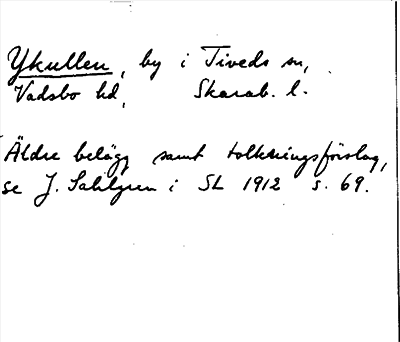 Ykullen, by i Tiveds sn,
Vadsbo hd, Skarab. l.
Äldre belägg samt tolkningsförslag,
se J. Sahlgren i SL 1912 s. 69.